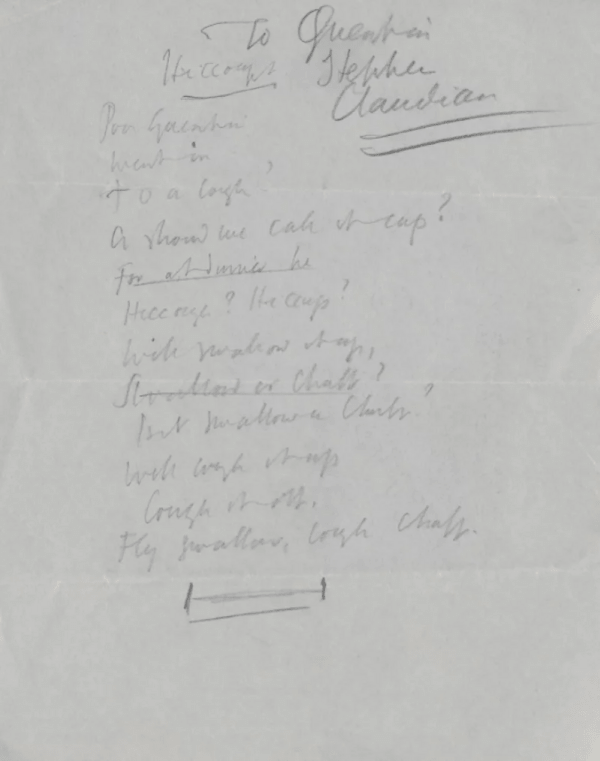 To Quentin
Hiccoups Stephen
Claudian
Poor Quentin
went in
To a cough,
O should we call it cup?
For at dinner he
Hiccough? Hiccup?
We'll swallow it up,
Swallow or Chaff?
Is it swallow or Chaff?
We'll cough it up
Cough it off.
Fly swallow, cough chaff.